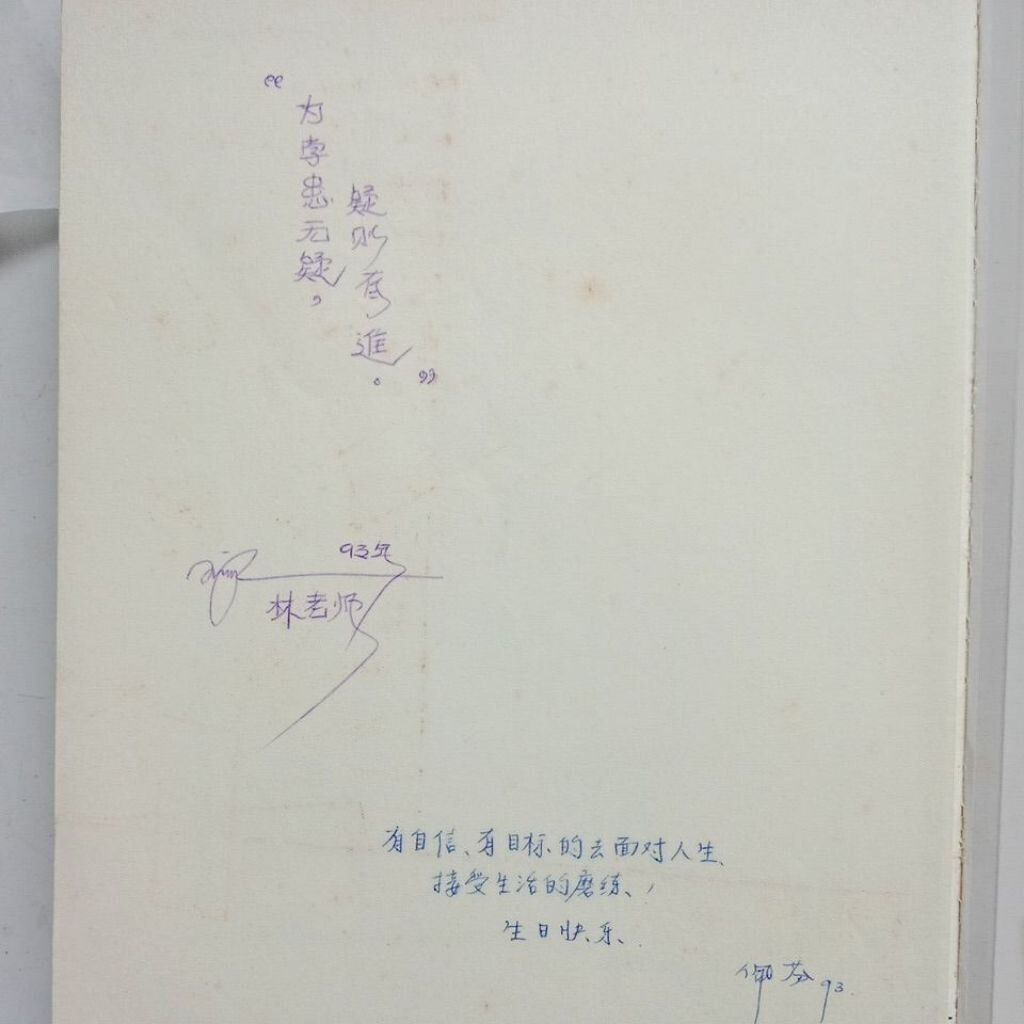 “为学患无疑，
疑则有進。”
93年
林老师
有自信、有目标的去面对人生、
接受生活的磨练、
生日快乐、
佩芬 93.